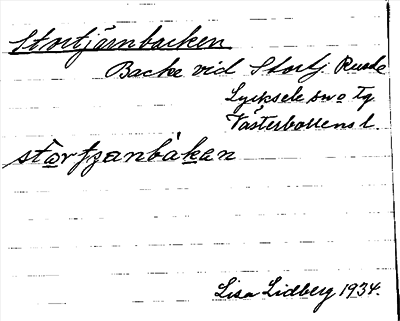 Stortjärnbacken
Backe vid Stortj Rusele
Lycksele sn o Tg
Västerbottens l.
sto̲rtjanbàkan
Lisa Lidberg 1934.